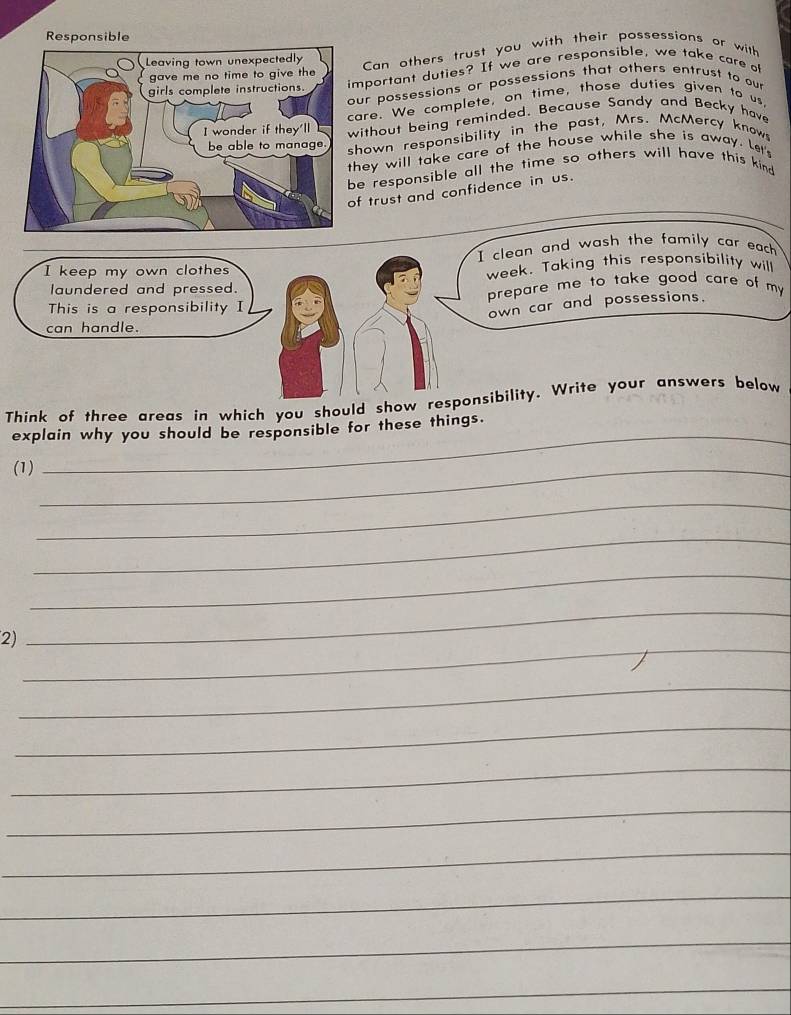 Responsible
Leaving town unexpectedly
gave me no time to give the
girls complete instructions.
I wonder if they'll
be able to manage.
Can others trust you with their possessions or with
important duties? If we are responsible, we take care of
our possessions or possessions that others entrust to our
care. We complete, on time, those duties given to us,
without being reminded. Because Sandy and Becky have
shown responsibility in the past, Mrs. McMercy knows
they will take care of the house while she is away. Let's
be responsible all the time so others will have this kind
of trust and confidence in us.
I keep my own clothes
laundered and pressed.
This is a responsibility I
can handle.
I clean and wash the family car each
week. Taking this responsibility will
prepare me to take good care of my
own car and possessions.
Think of three areas in which you should show responsibility. Write your answers below
explain why you should be responsible for these things.
(1)
2)